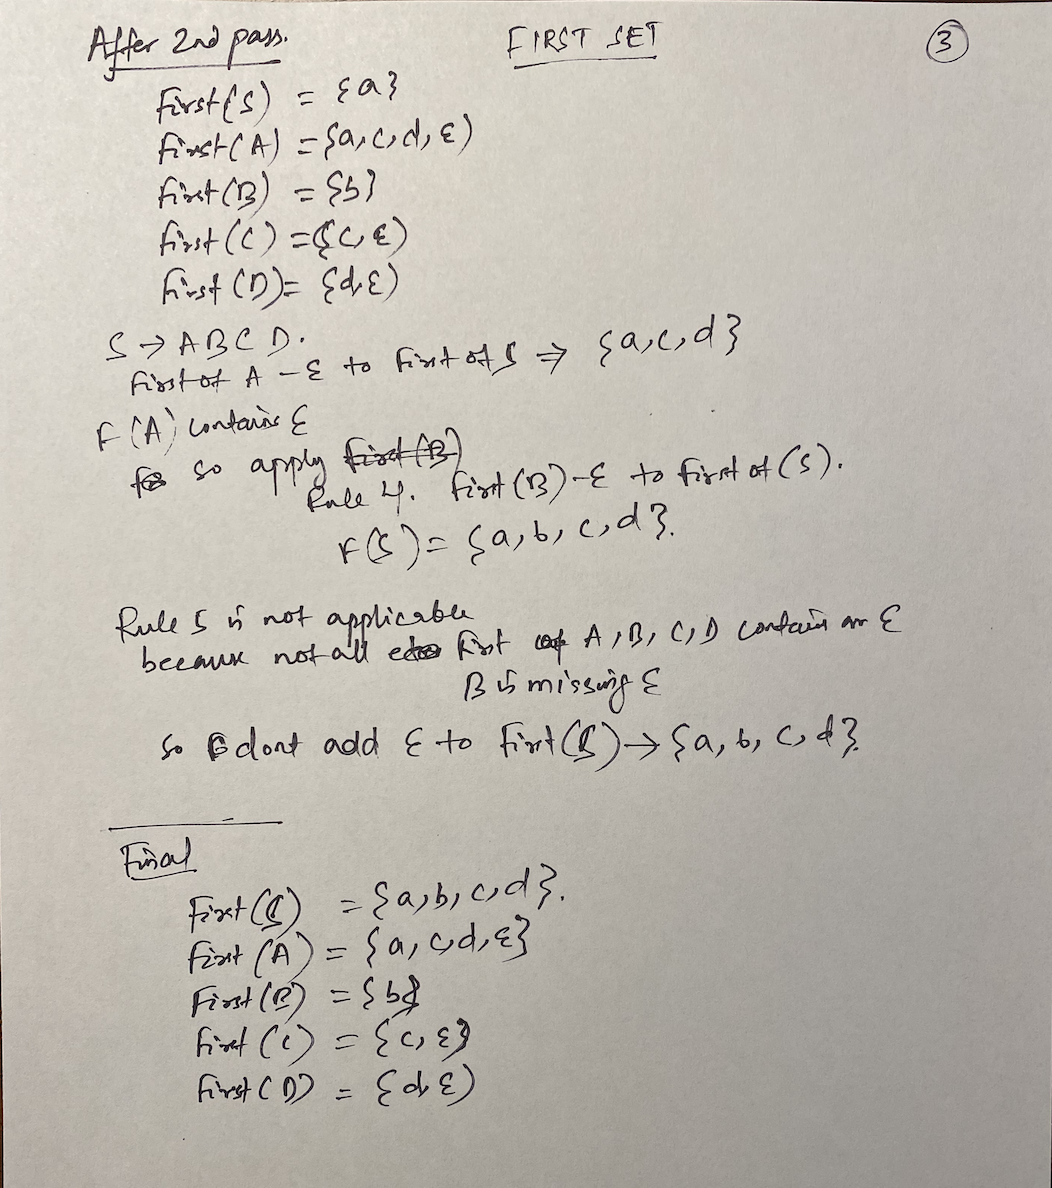 After 2nd pass. FIRST SET 3
First(S) = {a}
First(A) = {a,c,d,ε)
First(B) = {b}
First(C) = {c,ε)
First(D) = {d,ε)
S → A B C D.
First of A - ε to First of S ⇒ {a,c,d}
F(A) contains ε
so apply First(B)
Rule 4. First(B)-ε to first of (S).
F(S) = {a,b,c,d}.
Rule 5 is not applicable
because not all First of A, B, C, D contain an ε
B is missing ε
So dont add ε to First(S) → {a, b, c, d}.
Final
First(S) = {a,b,c,d}.
First(A) = {a,c,d,ε}
First(B) = {b}
First(C) = {c,ε}
First(D) = {d,ε)